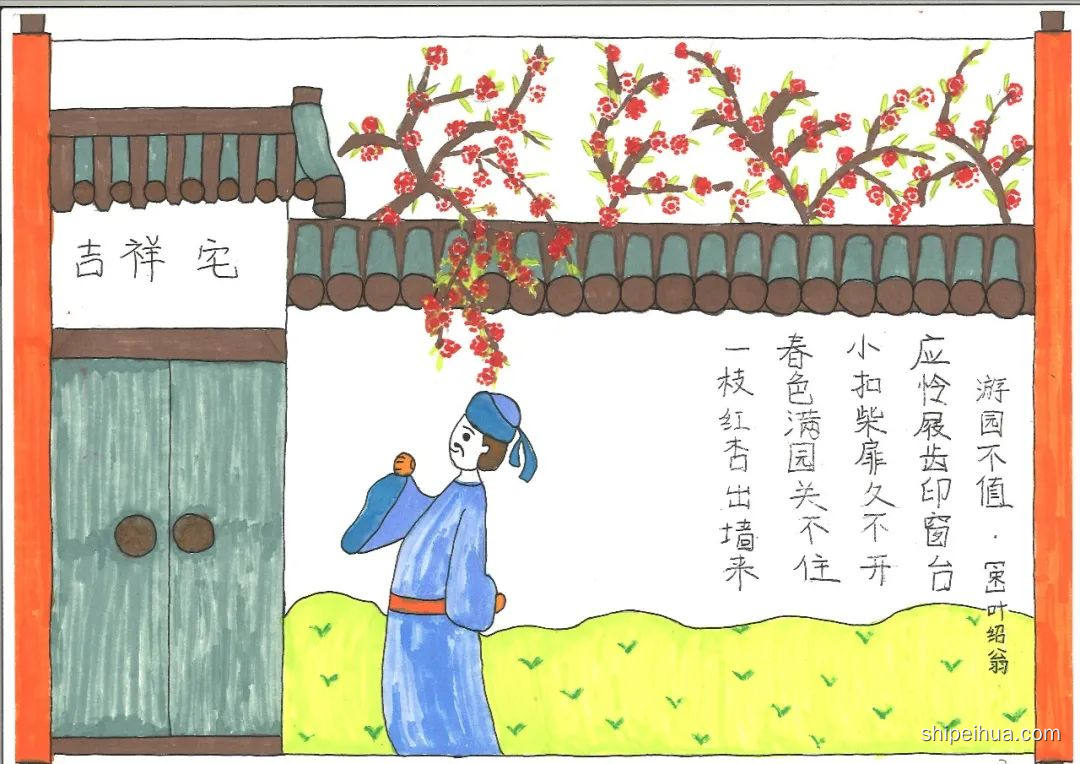 吉祥宅
游园不值·[宋]叶绍翁
应怜屐齿印窗台
小扣柴扉久不开
春色满园关不住
一枝红杏出墙来
shipeihua.com